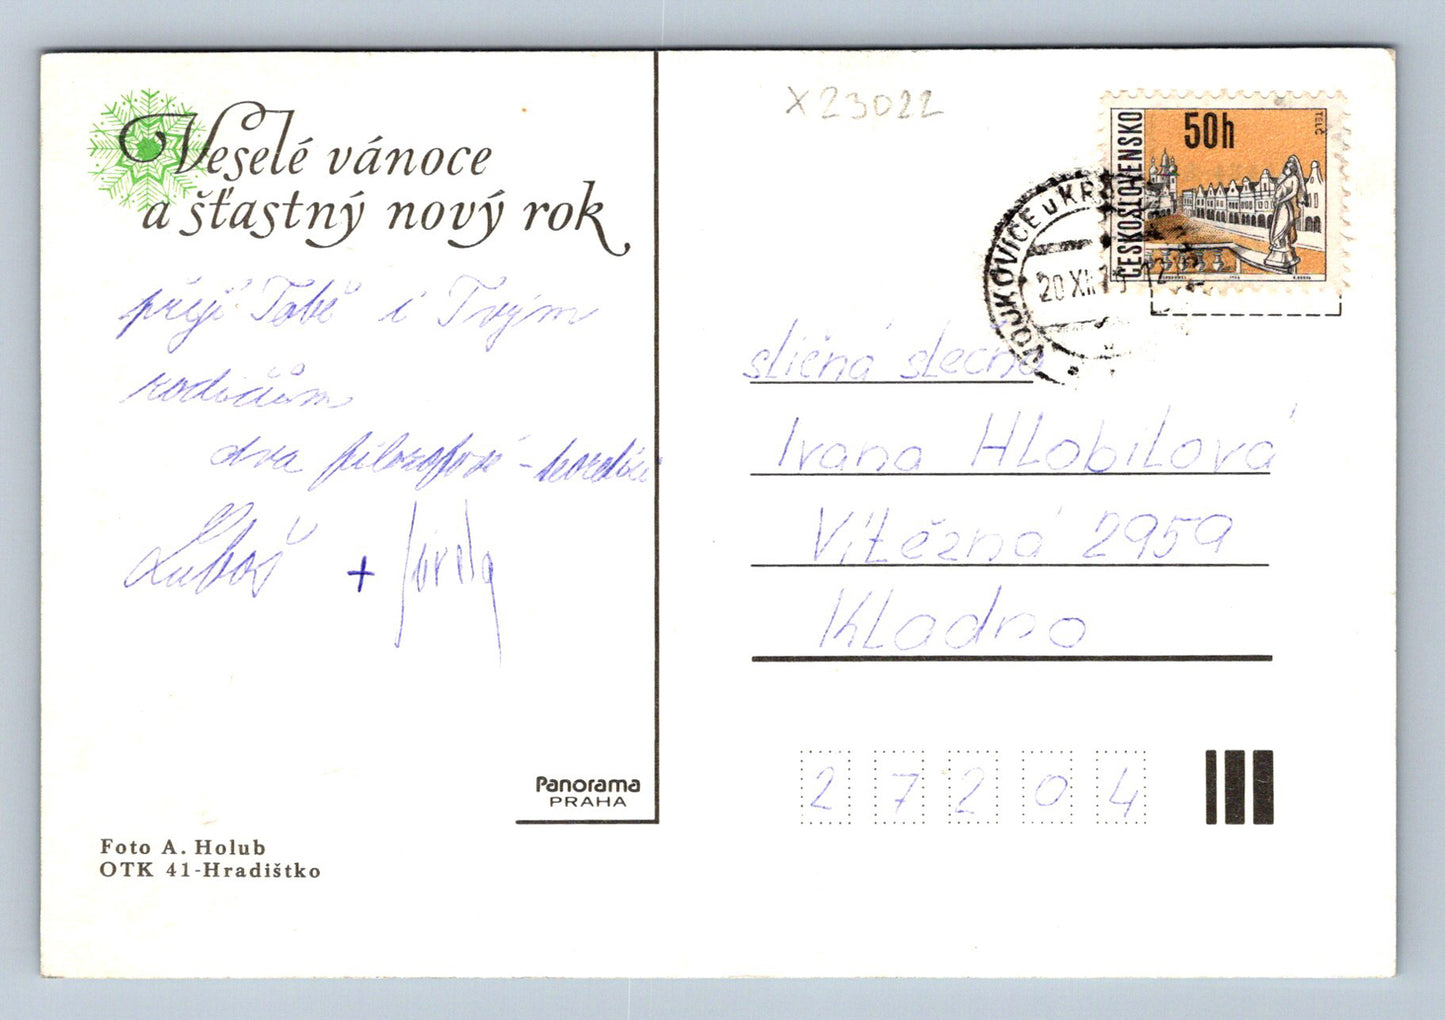 Veselé vánoce
a šťastný nový rok
přejí Tobě i Tvým
rodičům
dva filozofové
Luboš +
Panorama
PRAHA
Foto A. Holub
OTK 41-Hradištko
X23022
ČESKOSLOVENSKO
50h
TELČ
VOJKOVICE u KR
20 XII
sličná slečna
Ivana Hlobilová
Vítězná 2959
Kladno
27204